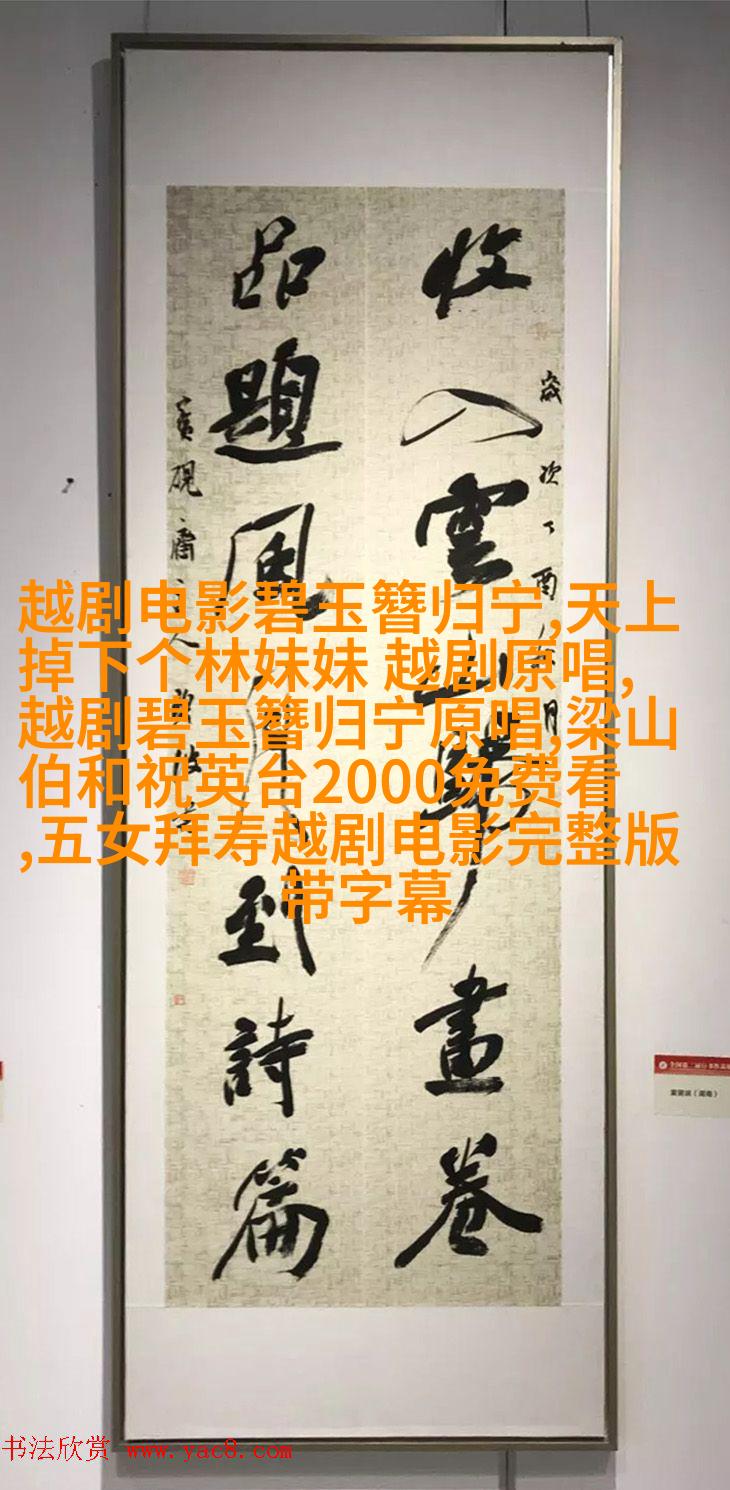 越剧电影碧玉簪归宁,天上
掉下个林妹妹 越剧原唱,
越剧碧玉簪归宁原唱,梁山
伯和祝英台2000免费看
,五女拜寿越剧电影完整版
带字幕
收入雲山畫卷
歲次丁酉月
品題風月到詩篇
硯齋主人
(湖南)
书法欣赏 www.yac8.com